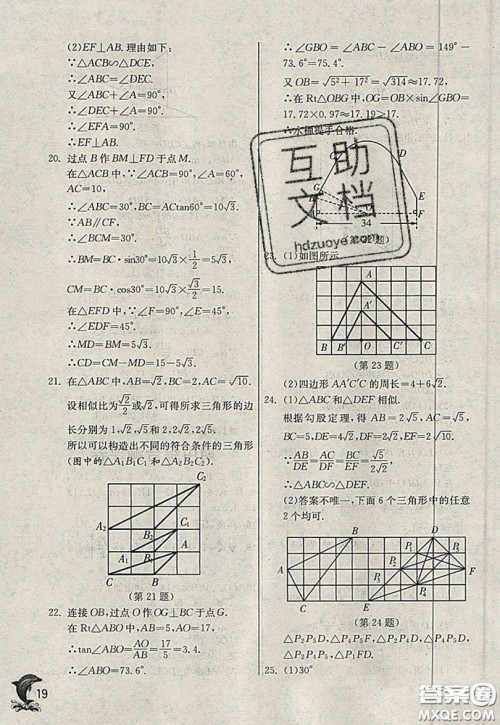 (2)EF⊥AB. 理由如下:
∵△ABC∽△DCE,
∴∠ABC=∠DEC.
又∠ABC+∠A=90°,
∴∠DEC+∠A=90°.
∴∠EFA=90°.
∴EF⊥AB.
20. 过点 B 作 BM⊥FD 于点 M.
在△ACB 中,∵∠ACB=90°,∠A=60°,
AC=10,
∴∠ABC=30°, BC=ACtan60°=10√3.
∵AB∥CF,
∴∠BCM=∠ABC=30°.
∴BM=BC·sin30°=10√3×1/2=5√3,
CM=BC·cos30°=10√3×√3/2=15.
在△EFD 中,∵∠F=90°,∠E=45°,
∴∠EDF=45°.
∴MD=BM=5√3.
∴CD=CM-MD=15-5√3.
21. 在△ABC 中,AB=√2,BC=2,AC=√10.
设相似比为√2/2或√2,可得所求三角形的边
长分别为 1,√2,√5 和 2,2√2,2√5.
所以可以构造出不同的符合条件的三角形
(图中的△A₁B₁C₁、△A₂B₂C₂).
C₂
A₂ B₂ C₁
A₁ B₁ A
C B
(第 21 题)
22. 连接 OB,过点 O 作 OG⊥BC 于点 G.
在 Rt△ABO 中,AB=5,AO=17,
∴tan∠ABO=AO/AB=17/5=3.4.
∴∠ABO=73.6°.
19
∴∠GBO=∠ABC-∠ABO=149°-
73.6°=75.4°.
又 OB=√(5²+17²)=√314≈17.72,
∴在 Rt△OBG 中,OG=OB×sin∠GBO=
17.72×0.97≈17.19>17.
∴水桶提手合格.
34
(第 22 题)
互助
文档
hdzuoye.com
23. (1)如图所示
A
A′
B B′ O C′ C
(第 23 题)
(2)四边形 AA′C′C 的周长=4+6√2.
24. (1)△ABC 和△DEF 相似.
根据勾股定理,得 AB=2√5,AC=√5,
BC=5,DE=4√2,DF=2√2,EF=2√10.
∵AB/DE=AC/DF=BC/EF=√5/2√2,
∴△ABC∽△DEF.
(2)答案不唯一,下面 6 个三角形中的任意
2 个均可.
B D
A F
C E
(第 24 题)
△P₂P₅D,△P₄P₅F,△P₂P₄D,
△P₄P₅D,△P₂P₄P₅,△P₁FD.
25. (1)30°
答案圈
MXQE.COM